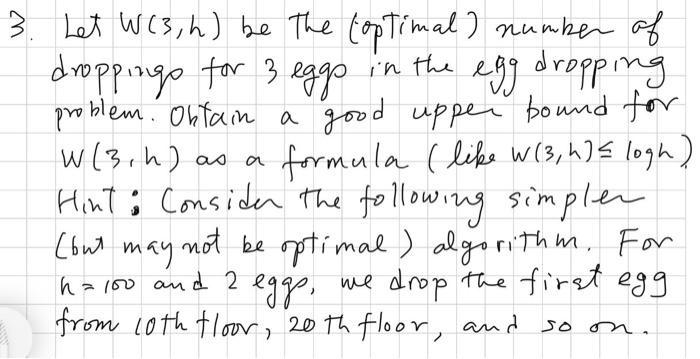 3. Let W(3,h) be the (optimal) number of
droppings for 3 eggs in the egg dropping
problem. Obtain a good upper bound for
W(3,h) as a formula (like W(3,h) ≤ log h)
Hint: Consider the following simpler
(but may not be optimal) algorithm. For
h=100 and 2 eggs, we drop the first egg
from 10th floor, 20th floor, and so on.